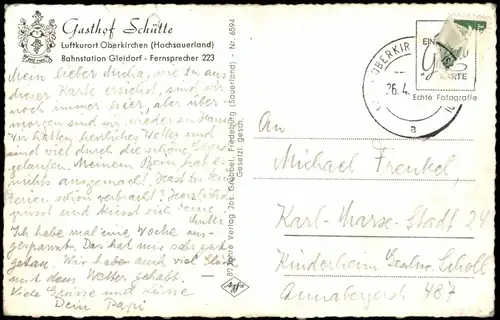 Gasthof Schütte
Luftkurort Oberkirchen (Hochsauerland)
Bahnstation Gleidorf - Fernsprecher 223
Mein lieber Micha, wie Du aus
dieser Karte ersiehst, sind wir
noch immer hier, aber über-
morgen sind wir wieder zu Hause
Wir hatten herrliches Wetter und
sind viel durch die schöne Gegend
gelaufen. Meinem Bein hat es
nichts ausgemacht. Hast Du Deine
Ferien schön verbracht? Herzlichst
grüsst und küsst Dich Deine
Mutti
Ich habe mal eine Woche aus-
gespannt. Das hat mir sehr gut
getan. Wir haben auch viel Glück
mit dem Wetter gehabt.
Viele Grüsse und Küsse
Dein Papi
Verlag Jos. Grobbel, Fredeburg (Sauerland) - Nr. 6594
Gesetzl. gesch.
Agfa
OBERKIR
26.4.
a
EIN
KARTE
Echte Fotografie
An
Michael Frenkel,
Karl-Marx-Stadt 24
Kinderheim Geschw. Scholl
Annabergerstr. 487